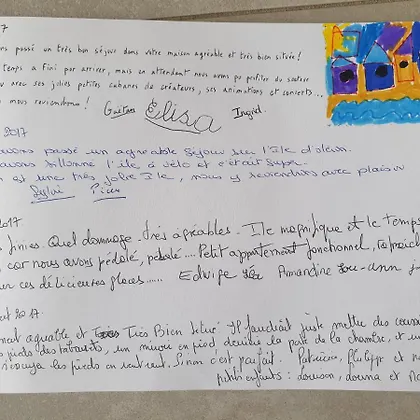 7
passé un très bon séjour dans votre maison agréable et très bien située!
temps a fini par arriver, mais en attendant nous avons pu profiter du
avec ses jolies petites cabanes de créateurs, ses animations et concerts...
nous reviendrons! Gaëtan Elisa Ingrid.
2017
avons passé un agréable séjour sur l'Ile d'oléron.
avons sillonné l'île à vélo et c'était super.
est une très jolie Ile, nous y reviendrons avec plaisir
Sylvie
2017
finies. Quel dommage. très agréables. Ile magnifique et le temps
car nous avons pédalé, pédalé.... Petit appartement fonctionnel,
ces délicieuses glaces..... Edwige Amandine
2017.
agréable et Très Bien situé. Il faudrait juste mettre des
pieds des tabourets, un miroir en pied derrière la porte de la chambre, et un
essuyer les pieds en rentrant. Sinon c'est parfait. Patricia, Philippe et
petits enfants: Louison,